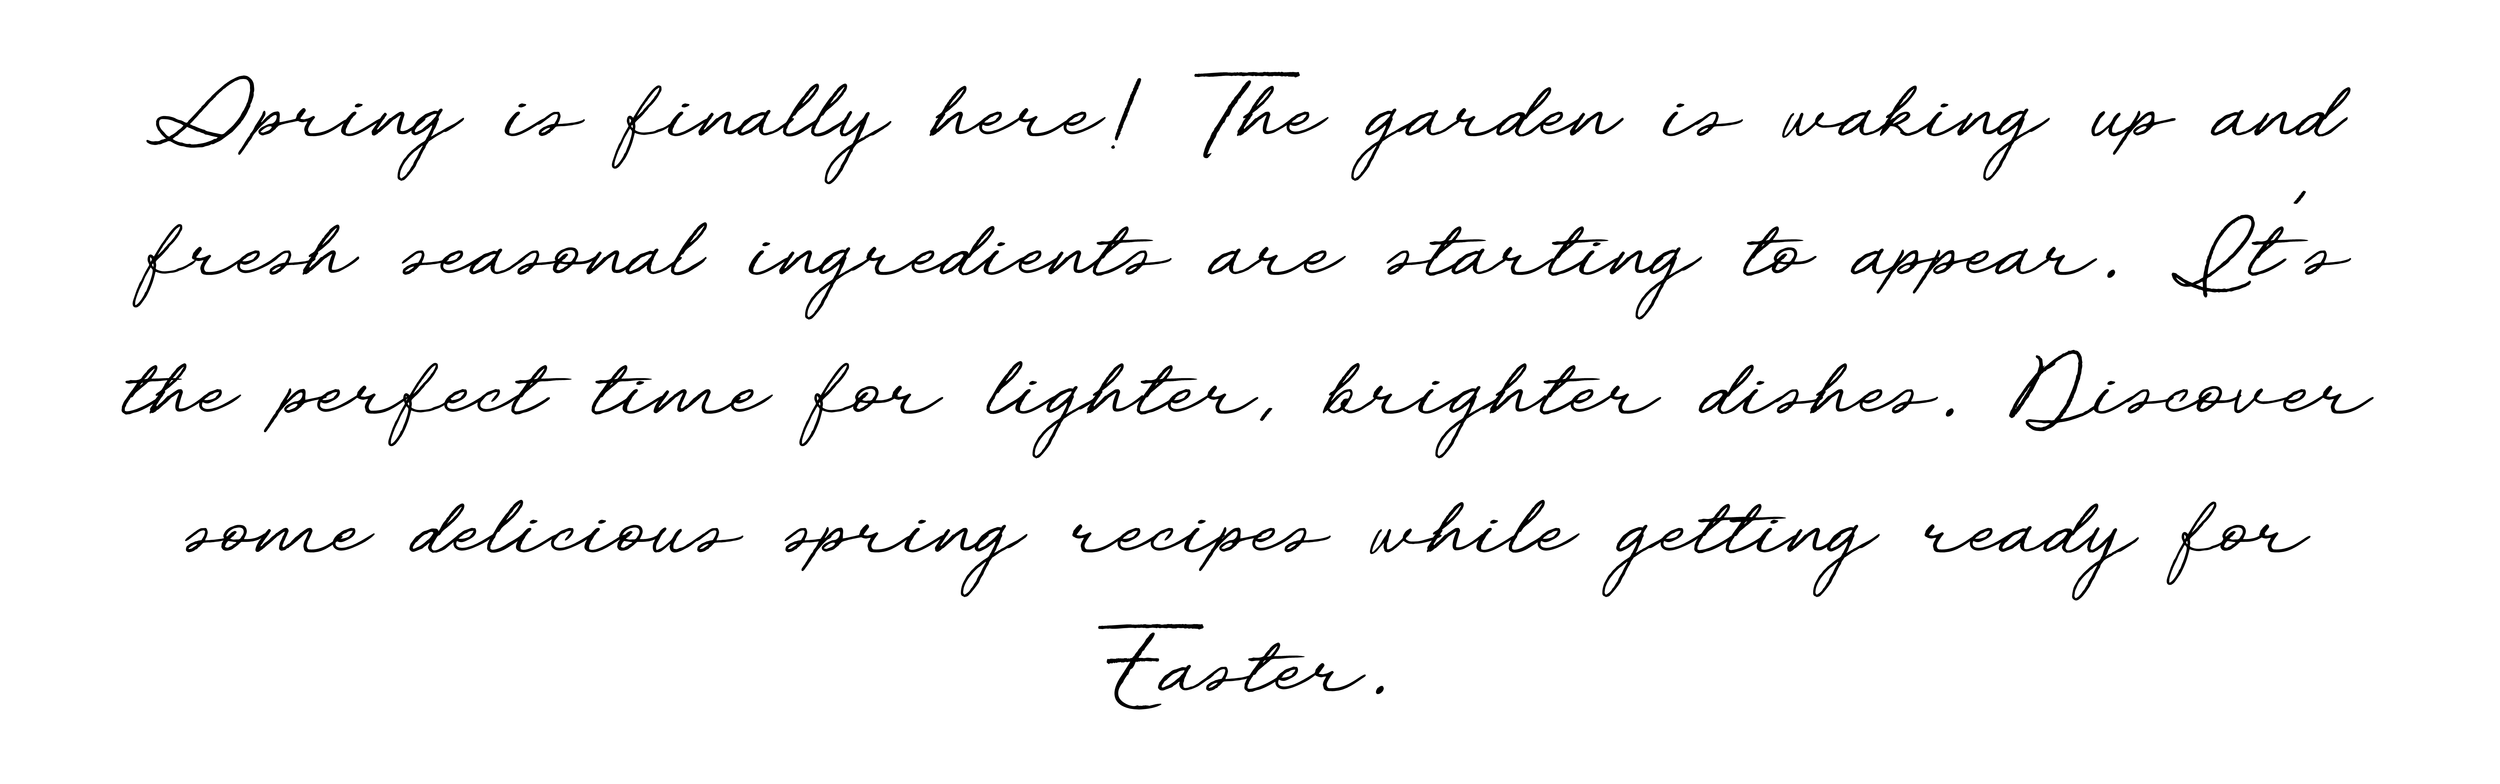 Spring is finally here! The garden is waking up and
fresh seasonal ingredients are starting to appear. It's
the perfect time for lighter, brighter dishes. Discover
some delicious spring recipes while getting ready for
Easter.